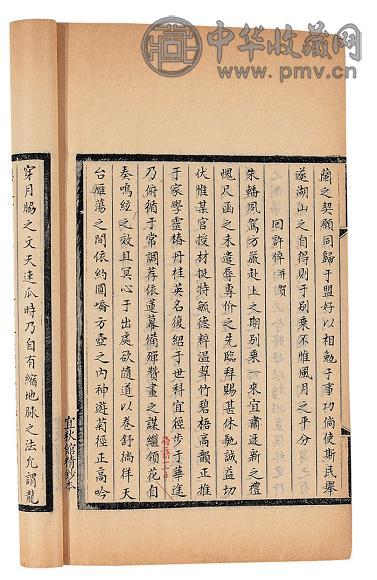 中华收藏网
www.pmv.cn
蘭之契願同歸于盟好以相勉于事功倘使斯民舉
遂湖山之自得則于别乘不惟風月之平分
回許倅并賀
朱轓夙駕方嚴赴上之期别乗來宜肅迓新之禮
愧尺函之未遣辱專价之先臨拜賜甚休馳誠益切
伏惟某官授材挺特毓德粹温翠竹碧梧高韻正推
于家學靈椿丹桂英名復紹于世科宜徑步于華途
乃俯循于常調荐依蓮幕備殫贊畫之謀繼領花
奏鳴絃之效且冥心于出處欲隨道以卷舒徜徉天
台雁蕩之間依約圓嶠方壺之内神遊菊徑正高吟
宜秋館精鈔本
穿月脇之文天速瓜時乃自有縮地脉之法允謂龍